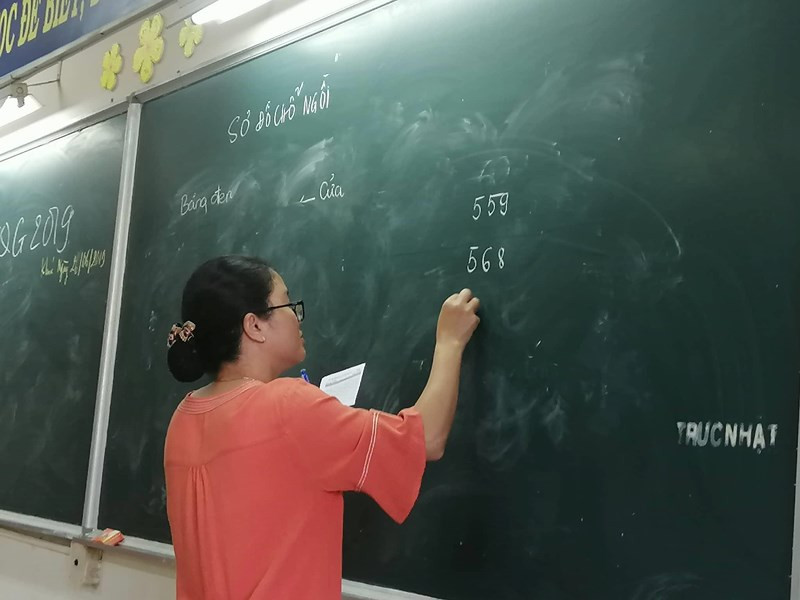 ỌC ĐỂ BIẾT,
QG 2019
SƠ ĐỒ CHỖ NGỒI
Bảng đen
← Cửa
559
568
TRỰC NHẬT